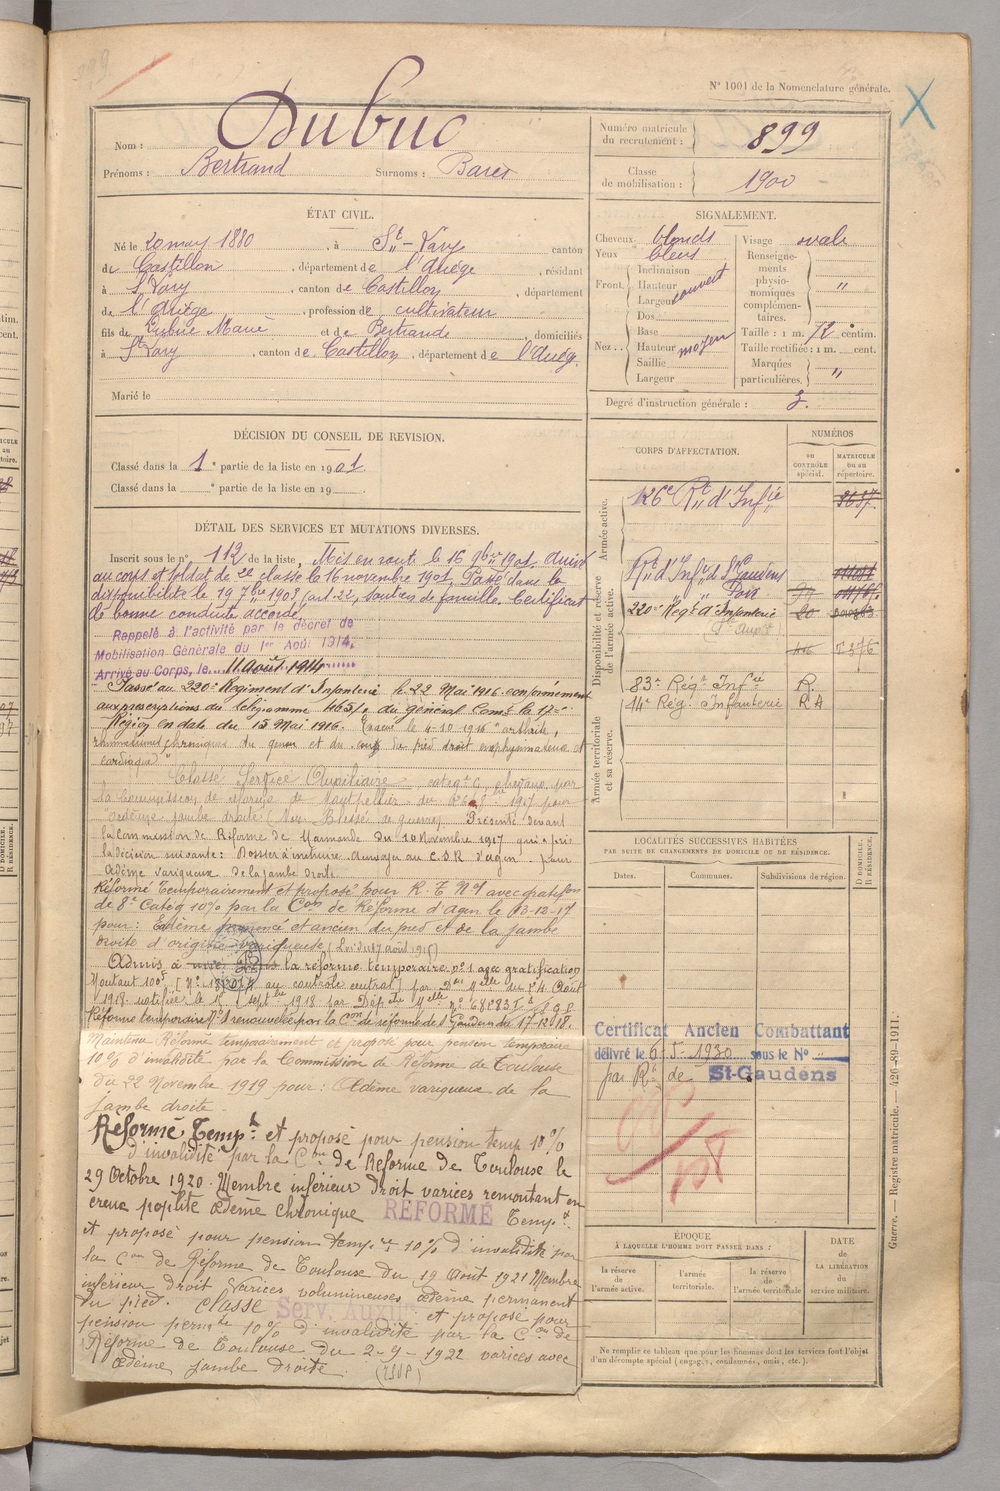 N° 1001 de la Nomenclature générale.
899
X
Nom : Dubuc
Prénoms : Bertrand Surnoms : Bares
Numéro matricule du recrutement : 899
Classe de mobilisation : 1900
ÉTAT CIVIL.
Né le 20 may 1880, à St-Lary canton
de Castillon, département de l'Ariége, résidant
à St Lary, canton de Castillon, département
de l'Ariège, profession de cultivateur
fils de Dubuc Marie et de Bertrande domiciliés
à St Lary, canton de Castillon, département de l'Arièg.
Marié le
SIGNALEMENT.
Cheveux blonds
Yeux bleus
Front. Inclinaison
Hauteur
Largeur couvert
Nez . . Dos
Base
Hauteur moyen
Saillie
Largeur
Visage ovale
Renseignements physionomiques complémentaires. "
Taille : 1 m. 72 centim.
Taille rectifiée : 1 m. cent.
Marques particulières. "
Degré d'instruction générale : 3.
DÉCISION DU CONSEIL DE REVISION.
Classé dans la 1e partie de la liste en 1901.
Classé dans la e partie de la liste en 19
DÉTAIL DES SERVICES ET MUTATIONS DIVERSES.
Inscrit sous le n° 112 de la liste, Mis en route le 16 9bre 1901. Arrivé
au corps et soldat de 2e classe le 16 novembre 1901. Passé dans la
disponibilité le 19 7bre 1903 (art. 22, soutien de famille. Certificat
de bonne conduite accordé.
Rappelé à l'activité par le décret de
Mobilisation Générale du 1er Août 1914.
Arrivé au Corps, le 11 Août 1914
Passé au 220e Régiment d'Infanterie le 22 Mai 1916 conformément
aux prescriptions du télégramme 4651/2 du général Comt la 17e
Région en date du 15 Mai 1916. Evacué le 4-10-1916 "arthrite,
rhumatismes chroniques du genou et du coup de pied droit emphysémateux et
cardiaque"
Classé Service Auxiliaire, catég. chevaux par
la Commission de réforme de Montpellier du 1917 pour
"œdème jambe droite (Non Blessé de guerre). Présenté devant
la Commission de Réforme de Marmande du 10 Novembre 1917 qui a pris
la décision suivante : Dossier à instruire. Renvoyer au C.S.R. d'Agen. pour
œdème variqueux de la jambe droite.
Réformé temporairement et proposé pour R. T. N°1 avec gratifon
de 8e Catég 10% par la Con de Réforme d'Agen le 13-12-17
pour : Œdème prononcé et ancien du pied et de la jambe
droite d'origine variqueuse (Loi du 17 août 1915)
Admis à la réforme temporaire n° 1 avec gratification
Montant 100f [N° au contrôle central] par Don Mlle du 24 Août
1918 notifiée le 5 septbre 1918 par Dépche Mlle n° 68883
Réforme temporaire N° 1 renouvelée par la Con de réforme de St Gaudens du 17-12-18.
Maintenu Réformé temporairement et proposé pour pension temporaire
10% d'invalidité par la Commission de Réforme de Toulouse
du 22 Novembre 1919 pour : Œdème variqueux de la
jambe droite.
Réformé Temp.t et proposé pour pension temp 10%
d'invalidité par la Con de Réforme de Toulouse le
29 Octobre 1920. Membre inférieur Droit varices remontant en
creux poplité œdème chronique RÉFORMÉ Temp.t
et proposé pour pension temp.re 10% d'invalidité par
la Con de Réforme de Toulouse du 19 Août 1921 Membre
inférieur Droit Varices volumineuses œdème permanent
du pied. Classé Serv. Auxre et proposé pour
pension permte 10% d'invalidité par la Con de
Réforme de Toulouse du 2-9-1922 varices avec
œdème jambe droite.
CORPS D'AFFECTATION.
NUMÉROS
AU CONTRÔLE spécial.
MATRICULE OU AU répertoire.
Armée active.
126e Rt d'Infie 3637.
Disponibilité et réserve de l'armée active.
Rt d'Infie de St Gaudens
220e Régt d'Infanterie 20
7376
Armée territoriale et sa réserve.
83e Régt Infie R.
14e Rég. infanterie R A
LOCALITÉS SUCCESSIVES HABITÉES
PAR SUITE DE CHANGEMENTS DE DOMICILE OU DE RÉSIDENCE.
D DOMICILE. R RÉSIDENCE.
Dates.
Communes.
Subdivisions de région.
Certificat Ancien Combattant
délivré le 6-5-1930 sous le N° "
par Rt de St-Gaudens
108
ÉPOQUE
À LAQUELLE L'HOMME DOIT PASSER DANS :
la réserve de l'armée active.
l'armée territoriale.
la réserve de l'armée territoriale
DATE de la LIBÉRATION du service militaire.
Ne remplir ce tableau que pour les hommes dont les services font l'objet
d'un décompte spécial (engag.s, condamnés, omis, etc.).
Guerre. — Registre matricule. — 426-89-1911.